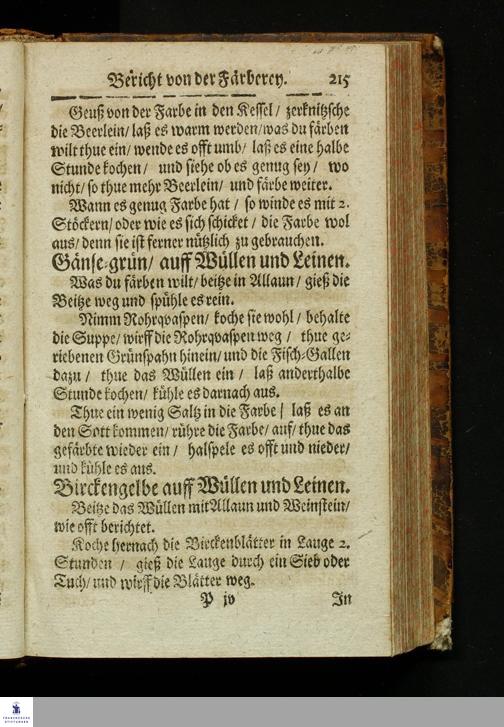 Bericht von der Färberey. 215
Geuß von der Farbe in den Kessel / zerknitzsche
die Beerlein / laß es warm werden / was du färben
wilt thue ein / wende es offt umb / laß es eine halbe
Stunde kochen / und siehe ob es genug sey / wo
nicht / so thue mehr Beerlein / und färbe weiter.
Wann es genug Farbe hat / so winde es mit 2.
Stöckern / oder wie es sich schicket / die Farbe wol
aus / denn sie ist ferner nützlich zu gebrauchen.
Gänse-grün / auff Wüllen und Leinen.
Was du färben wilt / beitze in Allaun / gieß die
Beitze weg und spühle es rein.
Nimm Rohrqvaspen / koche sie wohl / behalte
die Suppe / wirff die Rohrqvaspen weg / thue ge-
riebenen Grünspahn hinein / und die Fisch-Gallen
dazu / thue das Wüllen ein / laß anderthalbe
Stunde kochen / kühle es darnach aus.
Thue ein wenig Saltz in die Farbe / laß es an
den Sott kommen / rühre die Farbe / auf / thue das
gefärbte wieder ein / halspele es offt und nieder /
und kühle es aus.
Birckengelbe auff Wüllen und Leinen.
Beitze das Wüllen mit Allaun und Weinstein /
wie offt berichtet.
Koche hernach die Birckenblätter in Lauge 2.
Stunden / gieß die Lauge durch ein Sieb oder
Tuch / und wirff die Blätter weg.
P jv In
FRANCKESCHE
STIFTUNGEN